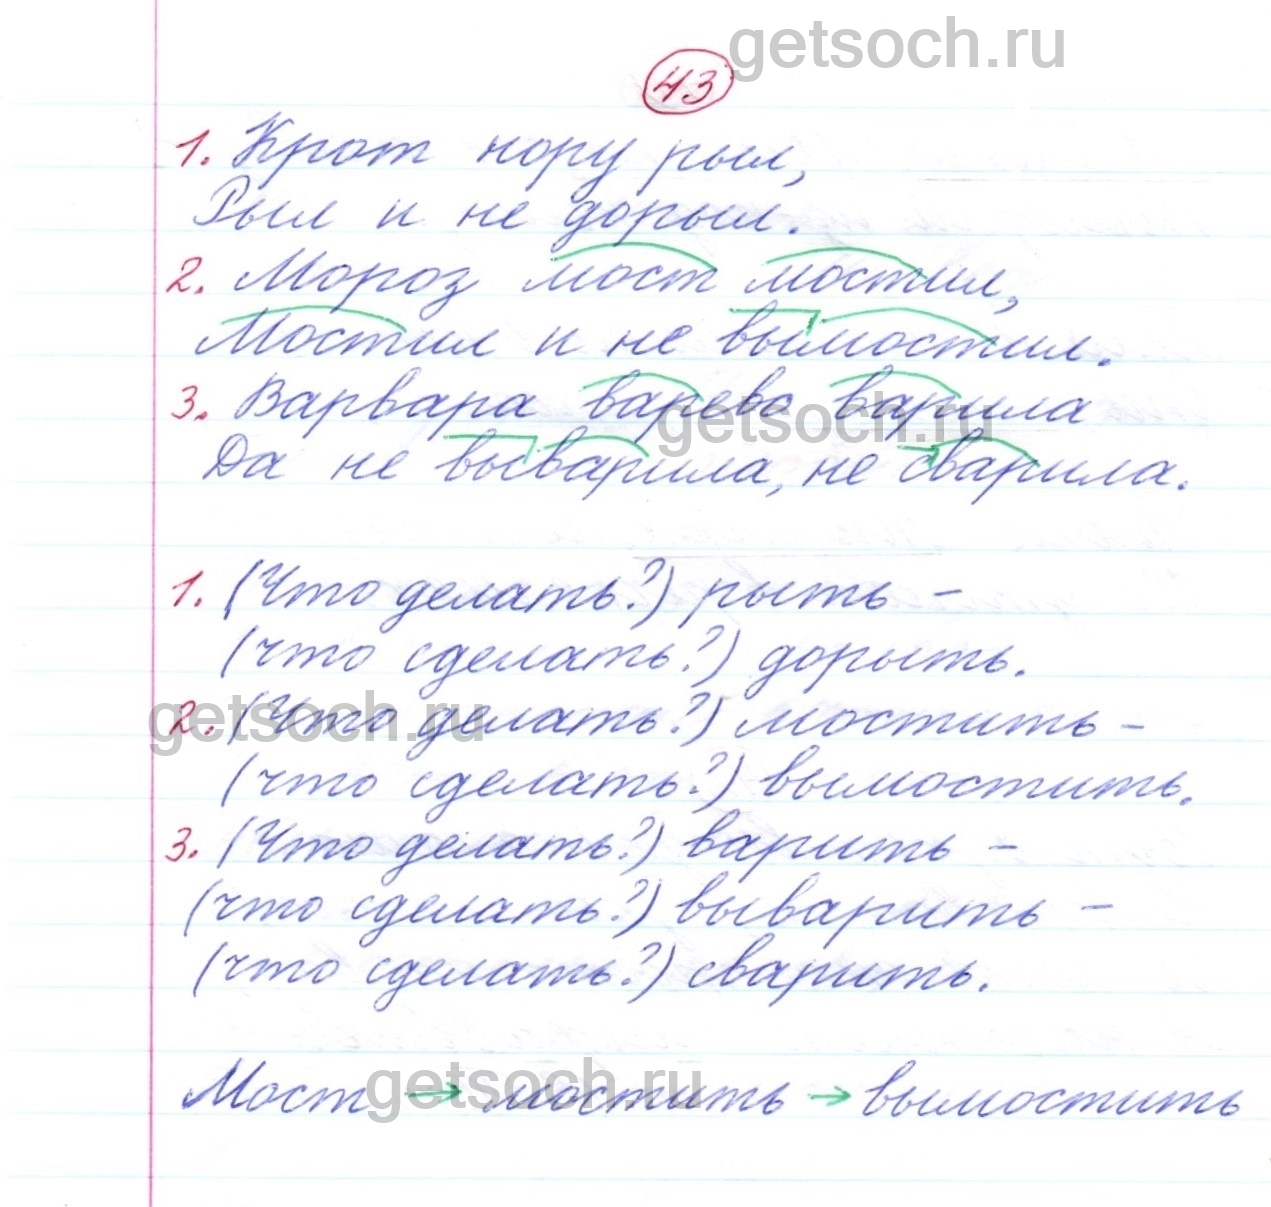 getsoch.ru
43
1. Крот нору рыл,
Рыл и не дорыл.
2. Мороз мост мостил,
Мостил и не вымостил.
3. Варвара варево варила
getsoch.ru
Да не выварила, не сварила.
1. (Что делать?) рыть –
(что сделать?) дорыть.
getsoch.ru
2. (Что делать?) мостить –
(что сделать?) вымостить.
3. (Что делать?) варить –
(что сделать?) выварить –
(что сделать?) сварить.
getsoch.ru
Мост → мостить → вымостить